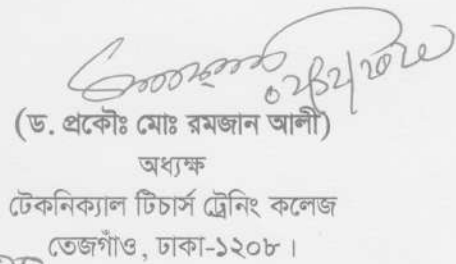 (ড. প্রকৌঃ মোঃ রমজান আলী)
অধ্যক্ষ
টেকনিক্যাল টিচার্স ট্রেনিং কলেজ
তেজগাঁও, ঢাকা-১২০৮।